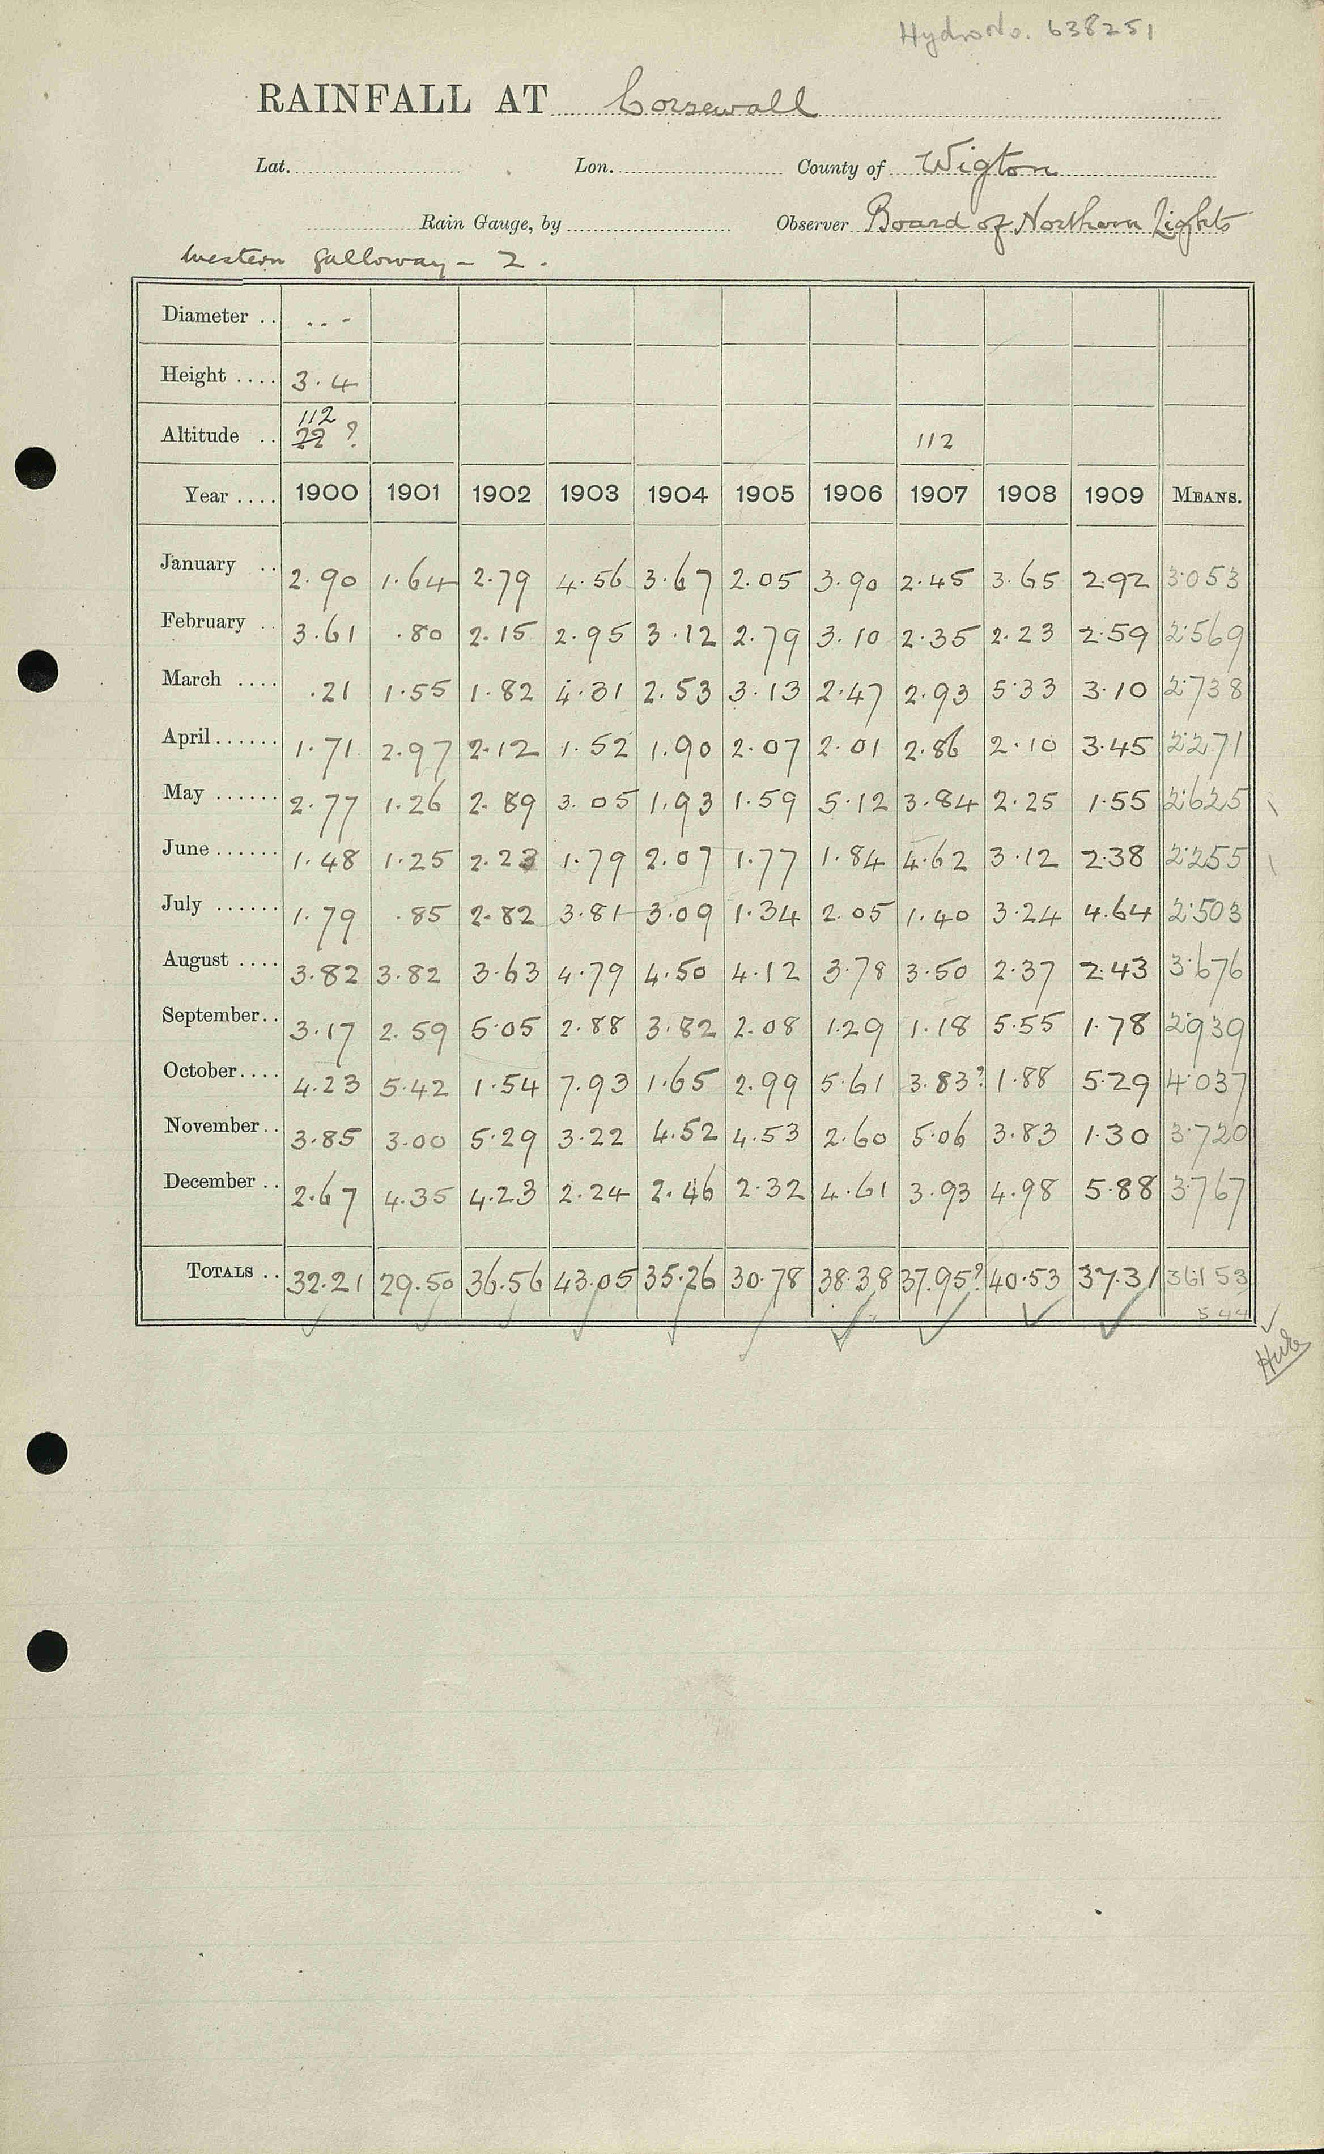 Hydro No. 638251
RAINFALL AT Corsewall
Lat. Lon. County of Wigton
Rain Gauge, by Observer Board of Northern Lights
Western Galloway - 2.
Diameter .. ...
Height .... 3.4
Altitude .. 112 22 ? 112
Year .... 1900 1901 1902 1903 1904 1905 1906 1907 1908 1909 MEANS.
January .. 2.90 1.64 2.79 4.56 3.67 2.05 3.90 2.45 3.65 2.92 3.053
February .. 3.61 .80 2.15 2.95 3.12 2.79 3.10 2.35 2.23 2.59 2.569
March .... .21 1.55 1.82 4.31 2.53 3.13 2.47 2.93 5.33 3.10 2.738
April ...... 1.71 2.97 2.12 1.52 1.90 2.07 2.01 2.86 2.10 3.45 2.271
May ...... 2.77 1.26 2.89 3.05 1.93 1.59 5.12 3.84 2.25 1.55 2.625
June ...... 1.48 1.25 2.23 1.79 2.07 1.77 1.84 4.62 3.12 2.38 2.255
July ...... 1.79 .85 2.82 3.81 3.09 1.34 2.05 1.40 3.24 4.64 2.503
August .... 3.82 3.82 3.63 4.79 4.50 4.12 3.78 3.50 2.37 2.43 3.676
September .. 3.17 2.59 5.05 2.88 3.82 2.08 1.29 1.18 5.55 1.78 2.939
October .... 4.23 5.42 1.54 7.93 1.65 2.99 5.61 3.83? 1.88 5.29 4.037
November .. 3.85 3.00 5.29 3.22 4.52 4.53 2.60 5.06 3.83 1.30 3.720
December .. 2.67 4.35 4.23 2.24 2.46 2.32 4.61 3.93 4.98 5.88 3.767
TOTALS .. 32.21 29.50 36.56 43.05 35.26 30.78 38.38 37.95? 40.53 37.31 36153
544